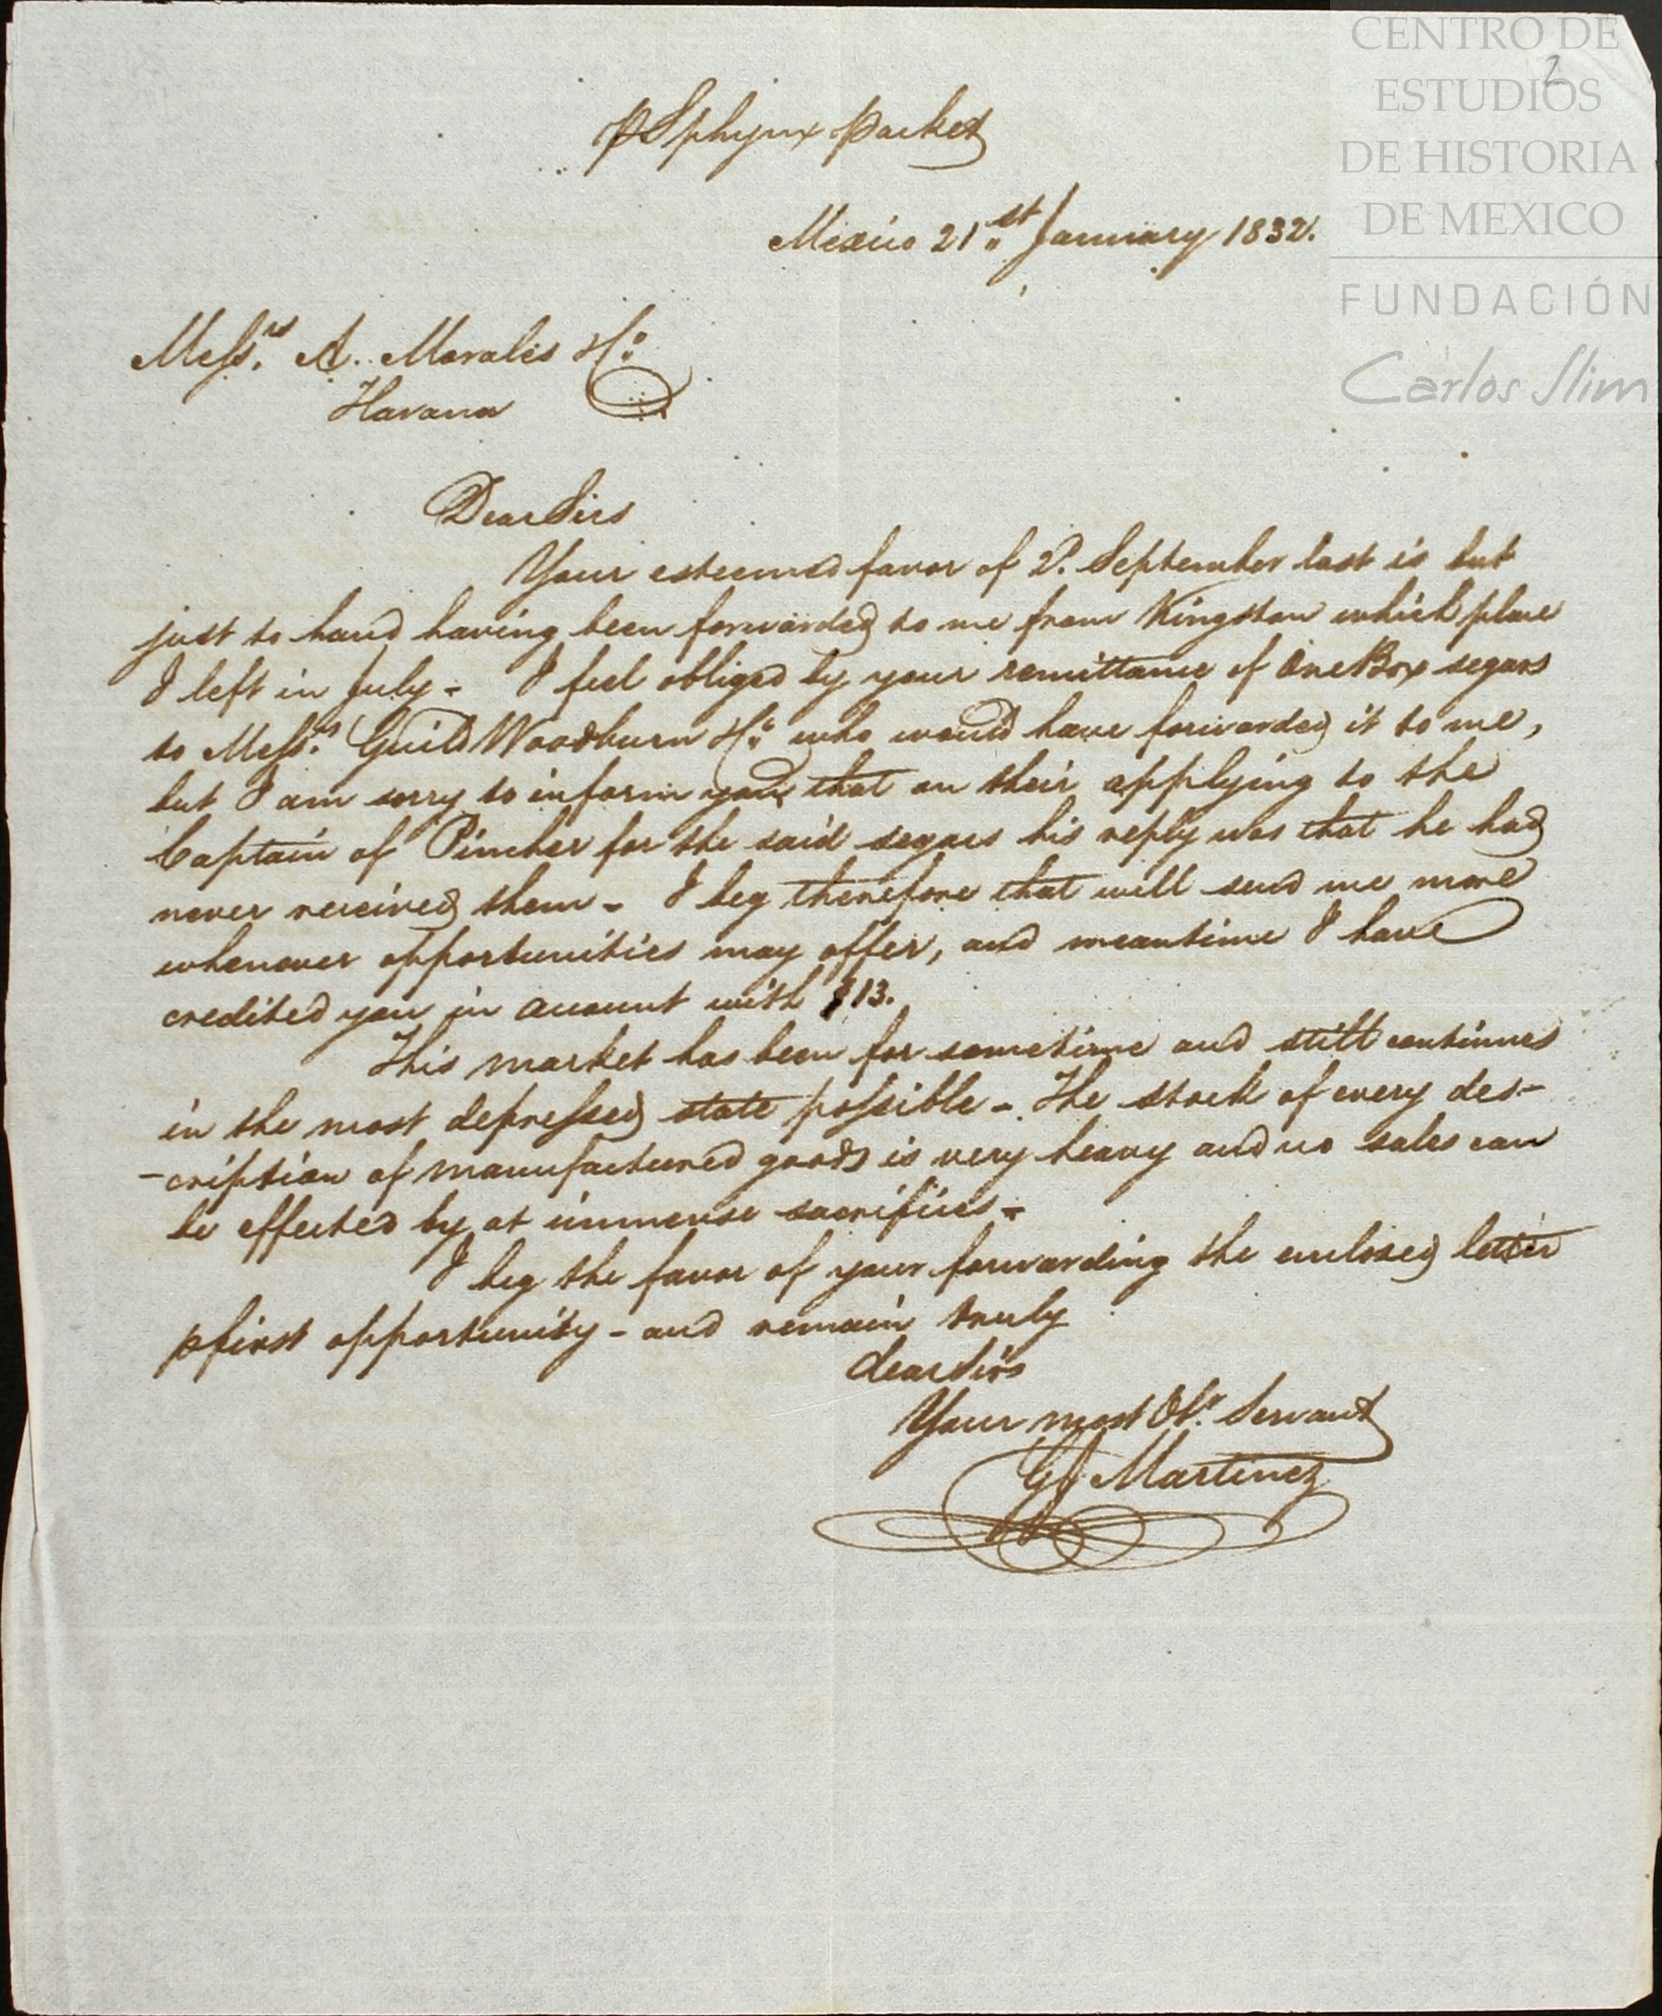 CENTRO DE
ESTUDIOS
DE HISTORIA
DE MEXICO
FUNDACIÓN
Carlos Slim
2
p Sphynx packet
Mexico 21st January 1832.
Messrs A. Morales & Co
Havana
Dear Sirs
Your esteemed favor of 2. September last is but
just to hand having been forwarded to me from Kingston which place
I left in July - I feel obliged by your remittance of One Box segars
to Messrs Guild Woodburn & Co who would have forwarded it to me,
but I am sorry to inform you that on their applying to the
Captain of Pincher for the said segars his reply was that he had
never received them - I beg therefore that will send me more
whenever opportunities may offer, and meantime I have
credited you in account with $13.
This market has been for sometime and still continues
in the most depressed state possible - The stock of every des-
-cription of manufactured goods is very heavy and no sales can
be effected by at immense sacrifices -
I beg the favor of your forwarding the enclosed letter
p first opportunity - and remain truly
dear Sirs
Your most Obt. Servant
GJ Martinez